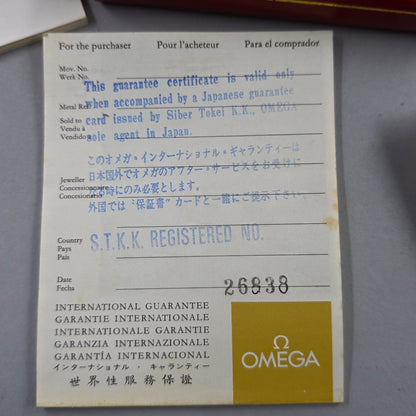 For the purchaser Pour l'acheteur Para el comprador
Mov. No.
Werk No.
This guarantee certificate is valid only
when accompanied by a Japanese guarantee
Metal Ref
card issued by Siber Tokei K.K., OMEGA
Sold to
Vendu à
sole agent in Japan.
Vendido a
このオメガ・インターナショナル・ギャランティーは
日本国外でオメガのアフター・サービスをお受けに
Jeweller
Concessionnaire
なる時にのみ必要とします。
Concesionario
外国では"保証書"カードと一緒にご提示下さい。
Country
Pays
País
S.T.K.K. REGISTERED NO.
Date
Fecha
26838
INTERNATIONAL GUARANTEE
GARANTIE INTERNATIONALE
INTERNATIONALE GARANTIE
GARANZIA INTERNAZIONALE
GARANTÍA INTERNACIONAL
インターナショナル・ギャランティー
世界性服務保證
Ω
OMEGA